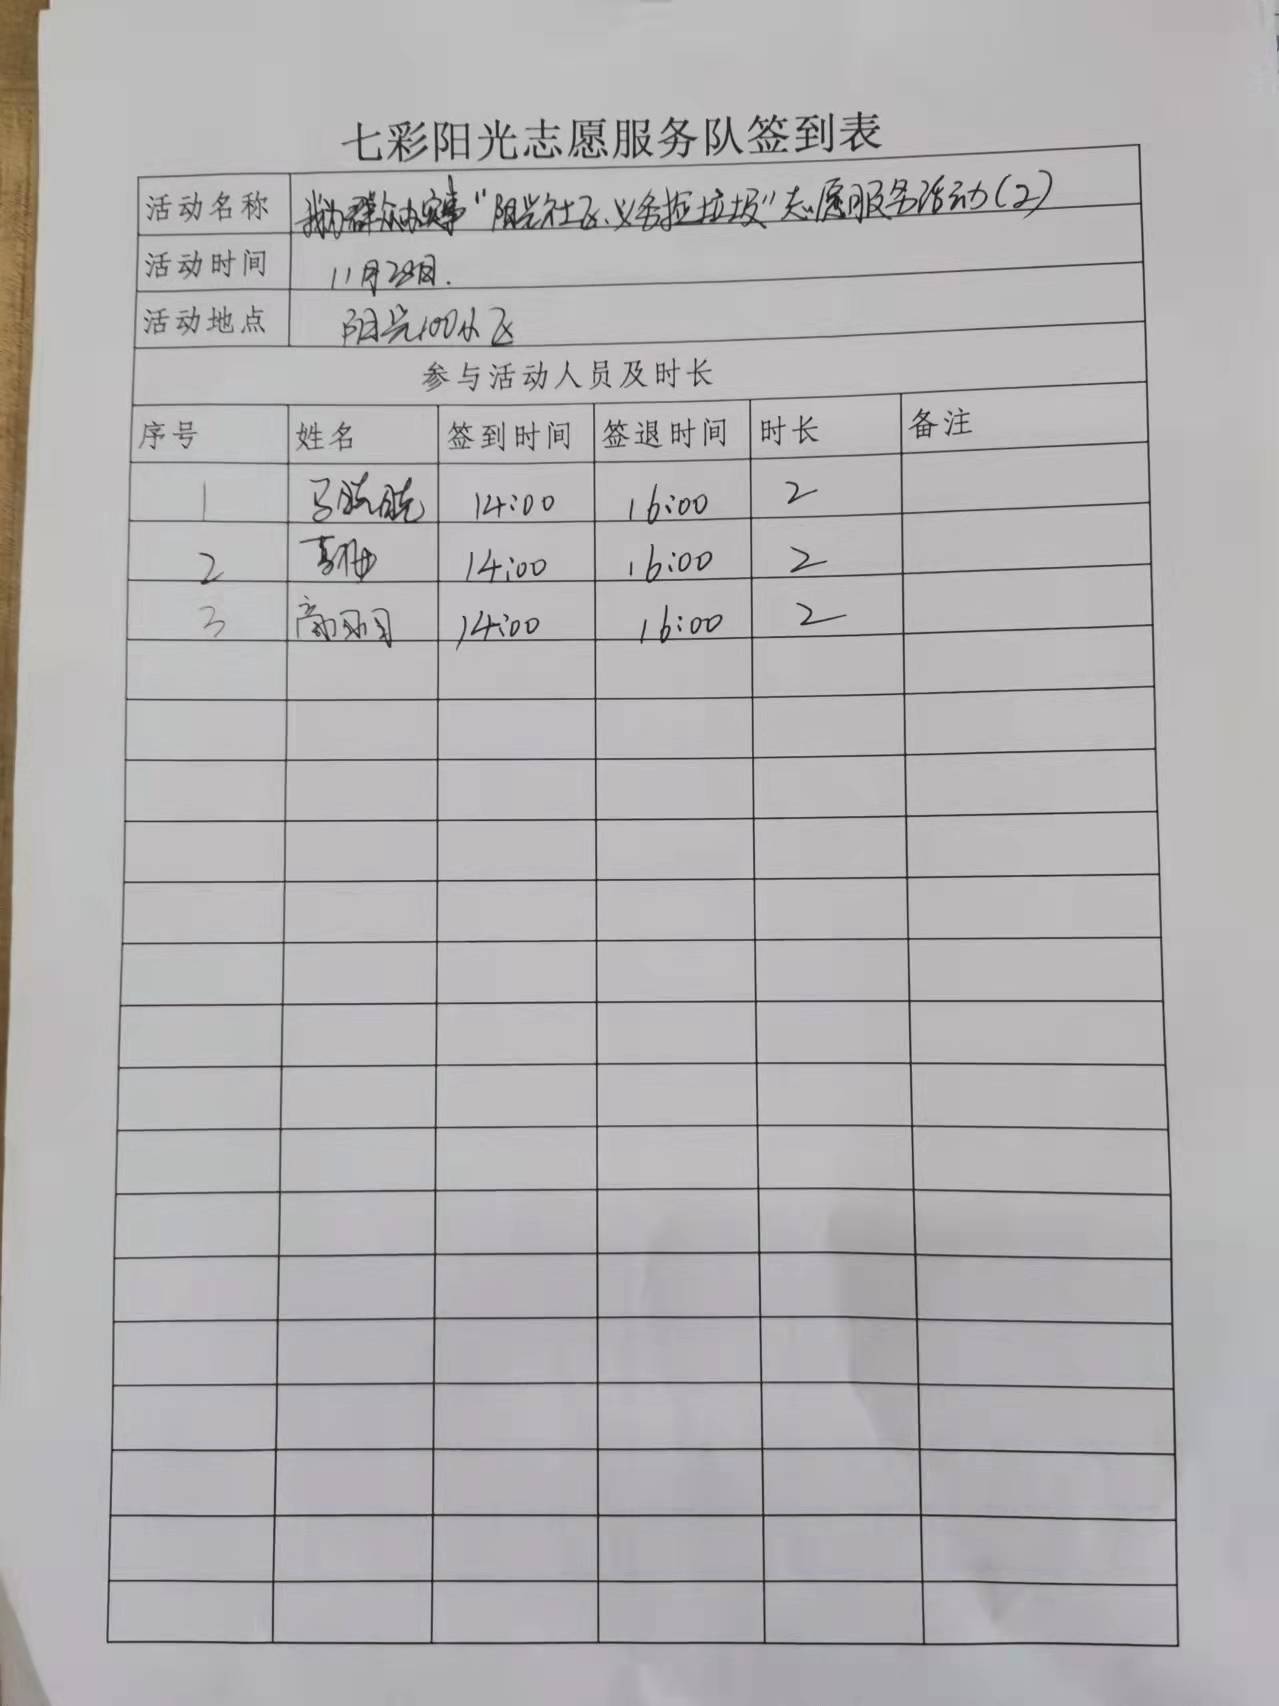 七彩阳光志愿服务队签到表
活动名称 我为群众办实事"阳光社区、义务捡垃圾"志愿服务活动(2)
活动时间 11月28日.
活动地点 阳光100小区
参与活动人员及时长
序号 姓名 签到时间 签退时间 时长 备注
1 马晓晓 14:00 16:00 2
2 14:00 16:00 2
3 14:00 16:00 2